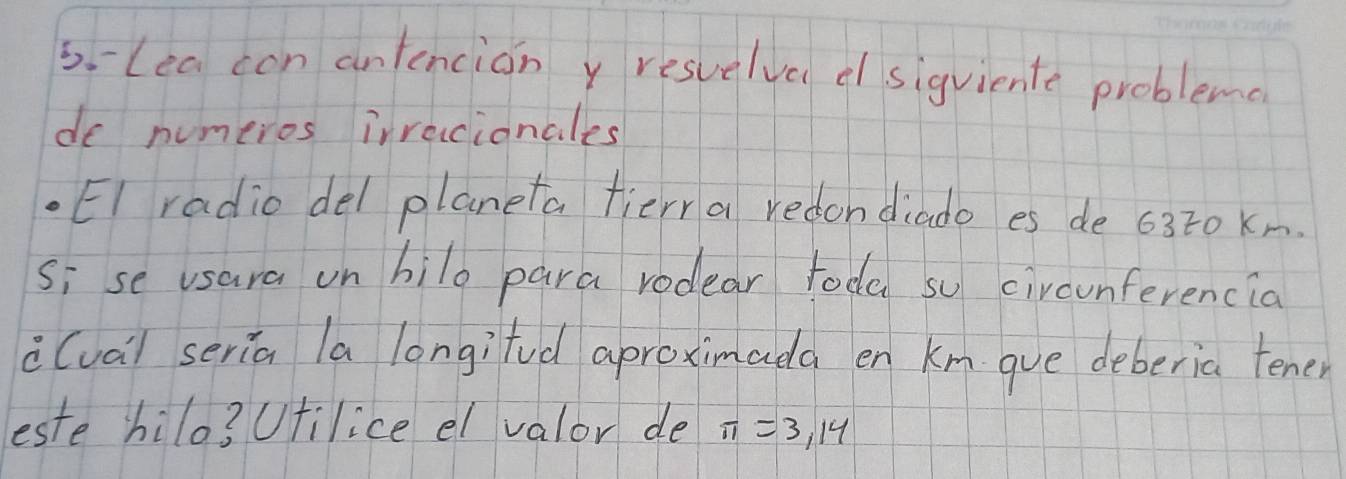 5.- Lea con antención y resuelva el siguiente problema
de numeros irracionales
• El radio del planeta tierra redondiado es de 6370 Km.
Si se usara un hilo para rodear toda su circunferencia
¿Cuál seria la longitud aproximada en Km que deberia tener
este hilo? Utilice el valor de π = 3,14